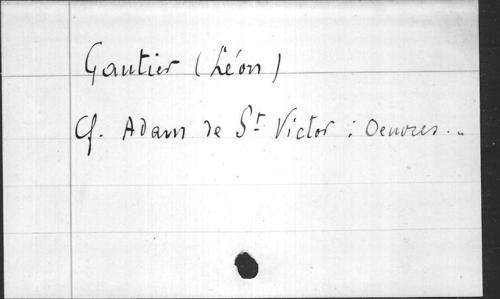 Gautier (Léon)
Cf. Adam de St. Victor : Oeuvres...